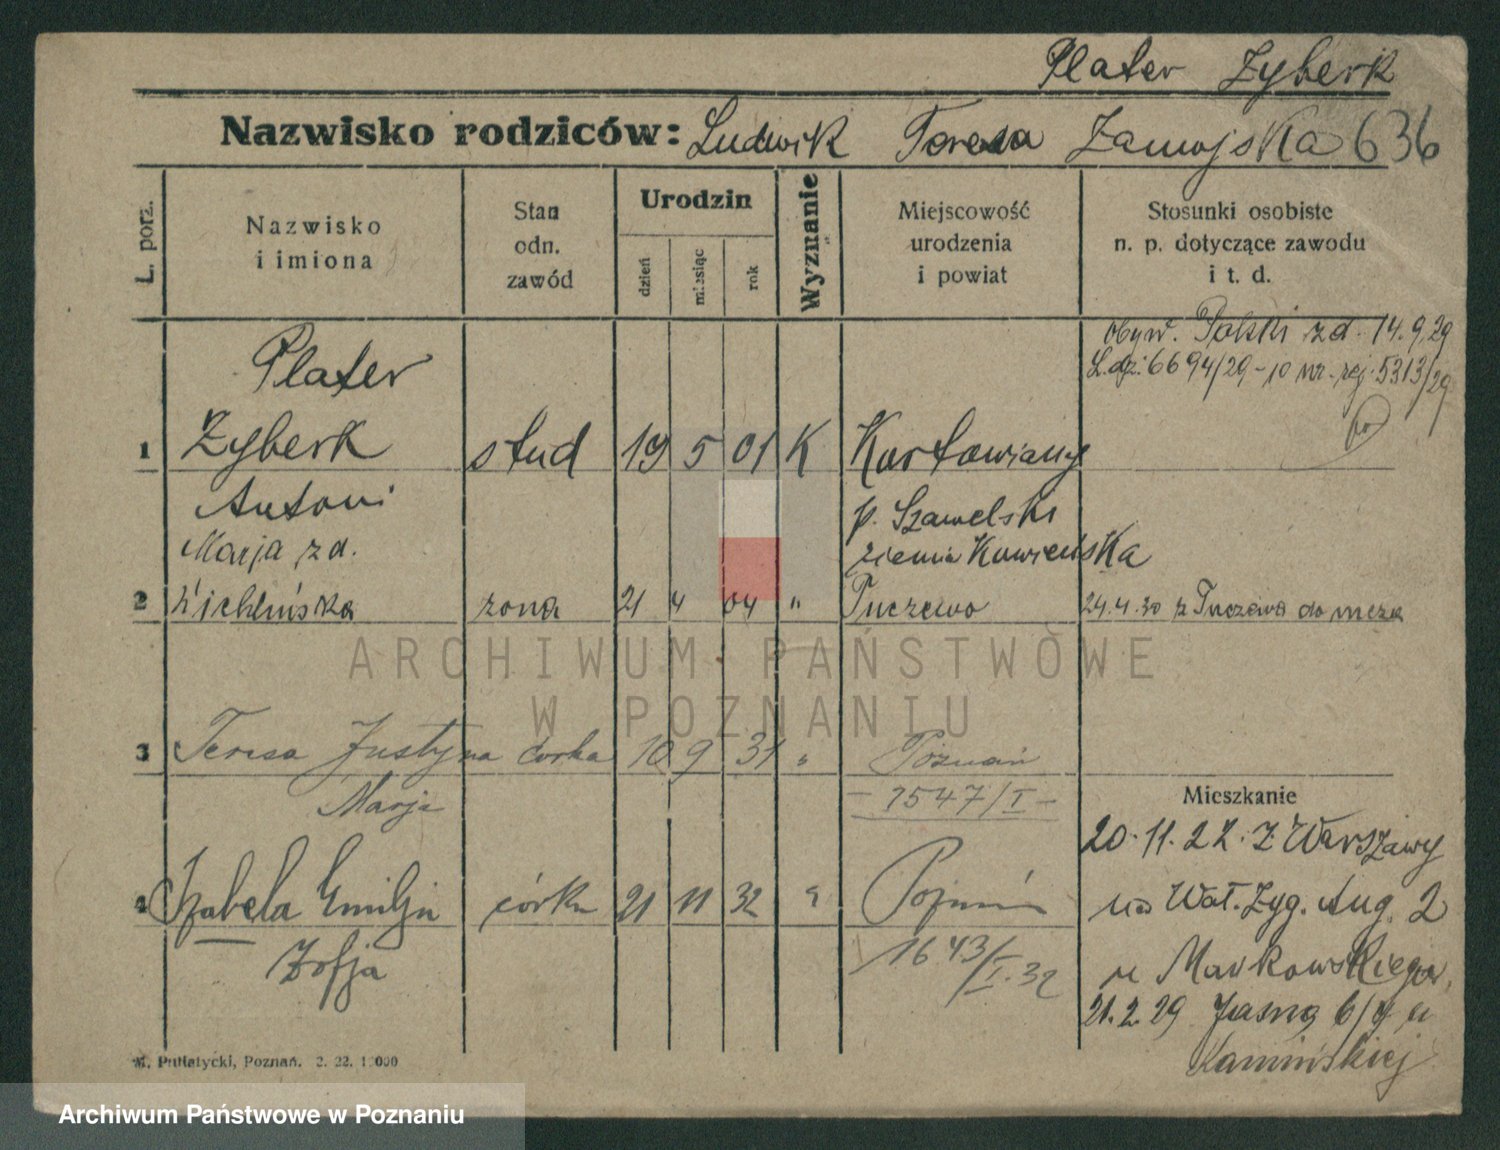 Plater Zyberk
Nazwisko rodziców: Ludwik Teresa Zamojska 636
L. porz.
Nazwisko
i imiona
Stan
odn.
zawód
Urodzin
dzień
miesiąc
rok
Wyznanie
Miejscowość
urodzenia
i powiat
Stosunki osobiste
n. p. dotyczące zawodu
i t. d.
obyw. Polski z d. 14.9.29
L.dz. 6694/29 - nr. rej. 5313/29
Plater
1 Zyberk stud 19 5 01 K Kurtowiany
Antoni p. Szawelski
Marja z d. ziemia Kowieńska
2 Żichlińska żona 21 4 04 " Tuczewo 24.4.30 z Tuczewa do męża
3 Teresa Justyna córka 10 9 31 " Poznań
Marja - 1547/I -
Mieszkanie
20.11.22. z Warszawy
4 Izabela Emilja córka 21 11 32 " Poznań
na Wał. Zyg. Aug. 2
Zofja 1643/I.32
u Markowskiego
21.2.29 Jasna 6/ u
Kamińskiej
M. Putiatycki, Poznań. 2. 22. 1000
ARCHIWUM PAŃSTWOWE
W POZNANIU
Archiwum Państwowe w Poznaniu